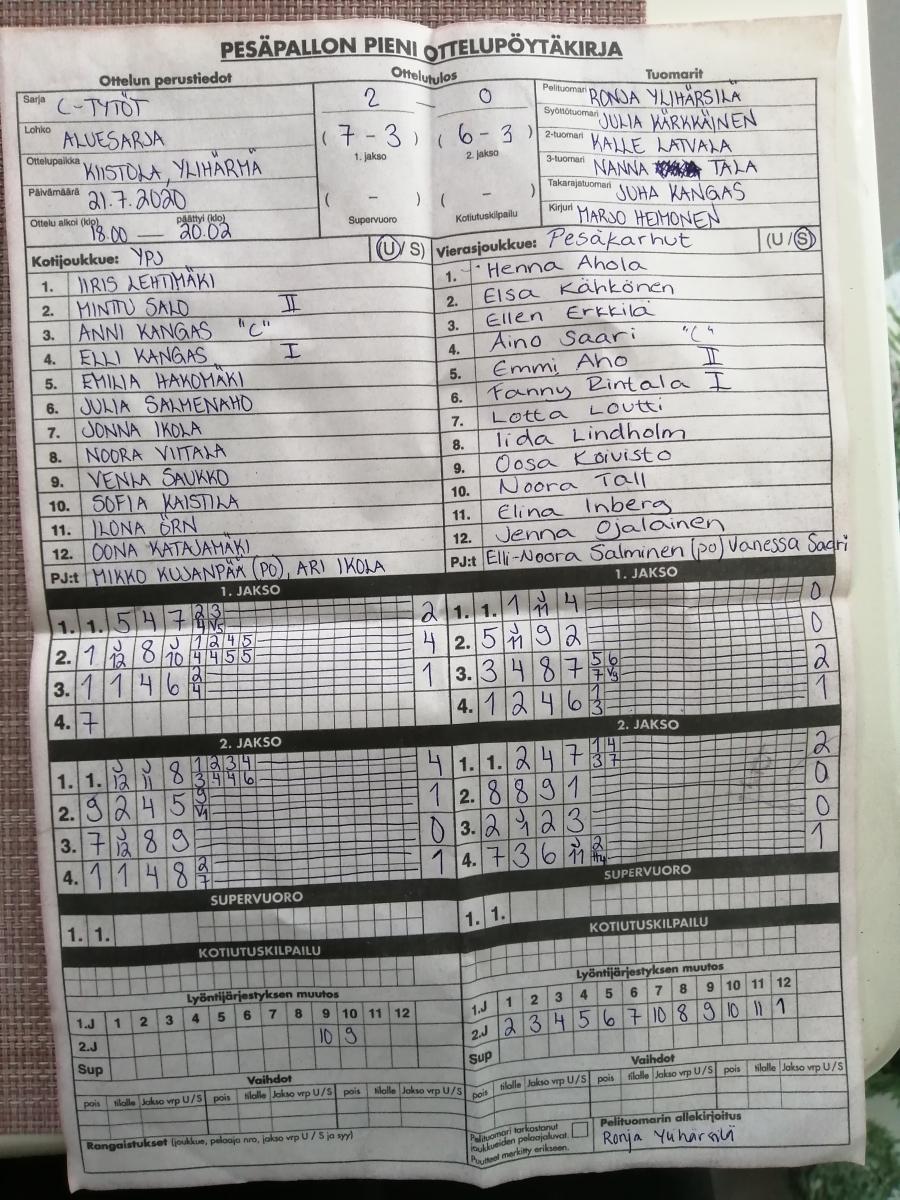 PESÄPALLON PIENI OTTELUPÖYTÄKIRJA
Ottelun perustiedot
Sarja C-TYTÖT
Lohko ALUESARJA
Ottelupaikka KIISTOLA, YLIHÄRMÄ
Päivämäärä 21.7.2020
Ottelu alkoi (klo) 18.00 — päättyi (klo) 20.02
Ottelutulos
2 — 0
( 7 - 3 ) ( 6 - 3 )
1. jakso 2. jakso
( - ) ( - )
Supervuoro Kotiutuskilpailu
Tuomarit
Pelituomari RONJA YLIHÄRSILÄ
Syöttötuomari JULIA KÄRKKÄINEN
2-tuomari KALLE LATVALA
3-tuomari NANNA TALA
Takarajatuomari JUHA KANGAS
Kirjuri MARJO HEIMONEN
Kotijoukkue: YPJ (U/S)
1. IIRIS LEHTIMÄKI
2. MINTTU SALO II
3. ANNI KANGAS "C"
4. ELLI KANGAS I
5. EMILIA HAKOMÄKI
6. JULIA SALMENAHO
7. JONNA IKOLA
8. NOORA VIITALA
9. VENLA SAUKKO
10. SOFIA KAISTILA
11. ILONA ÖRN
12. OONA KATAJAMÄKI
PJ:t MIKKO KUJANPÄÄ (PO), ARI IKOLA
Vierasjoukkue: Pesäkarhut (U/S)
1. Henna Ahola
2. Elsa Kähkönen
3. Ellen Erkkilä
4. Aino Saari "C"
5. Emmi Aho II
6. Fanny Rintala I
7. Lotta Loutti
8. Iida Lindholm
9. Oosa Koivisto
10. Noora Tall
11. Elina Inberg
12. Jenna Ojalainen
PJ:t Elli-Noora Salminen (po) Vanessa Saari
1. JAKSO
1. 1. 5 4 7 2 3 2
4 V5
2. 1 J 12 8 J 10 1 2 4 5 4
4 4 5 5
3. 1 1 4 6 2 1
4
4. 7
2. JAKSO
1. 1. J 12 J 11 8 1 2 3 4 4
3 4 4 6
2. 9 2 4 5 9 1
V1
3. 7 J 12 8 9 0
4. 1 1 4 8 2 1
7
SUPERVUORO
1. 1.
KOTIUTUSKILPAILU
Lyöntijärjestyksen muutos
1.J 1 2 3 4 5 6 7 8 9 10 11 12
2.J 10 9
Sup
Vaihdot
pois tilalle Jakso vrp U / S pois tilalle Jakso vrp U / S pois tilalle Jakso vrp U / S
Rangaistukset (joukkue, pelaaja nro, jakso vrp U / S ja syy)
1. JAKSO
1. 1. 1 J 11 4 0
2. 5 J 11 9 2 0
3. 3 4 8 7 5 6 2
7 V9
4. 1 2 4 6 1 1
3
2. JAKSO
1. 1. 2 4 7 1 4 2
3 7
2. 8 8 9 1 0
3. 2 J 1 2 3 0
4. 7 3 6 J 11 2 1
SUPERVUORO
1. 1.
KOTIUTUSKILPAILU
Lyöntijärjestyksen muutos
1.J 1 2 3 4 5 6 7 8 9 10 11 12
2.J 2 3 4 5 6 7 10 8 9 10 11 1
Sup
Vaihdot
pois tilalle Jakso vrp U / S pois tilalle Jakso vrp U / S pois tilalle Jakso vrp U / S
Pelituomari tarkastanut
joukkueiden pelaajaluvat.
Puutteet merkitty erikseen.
Pelituomarin allekirjoitus
Ronja Ylihärsilä